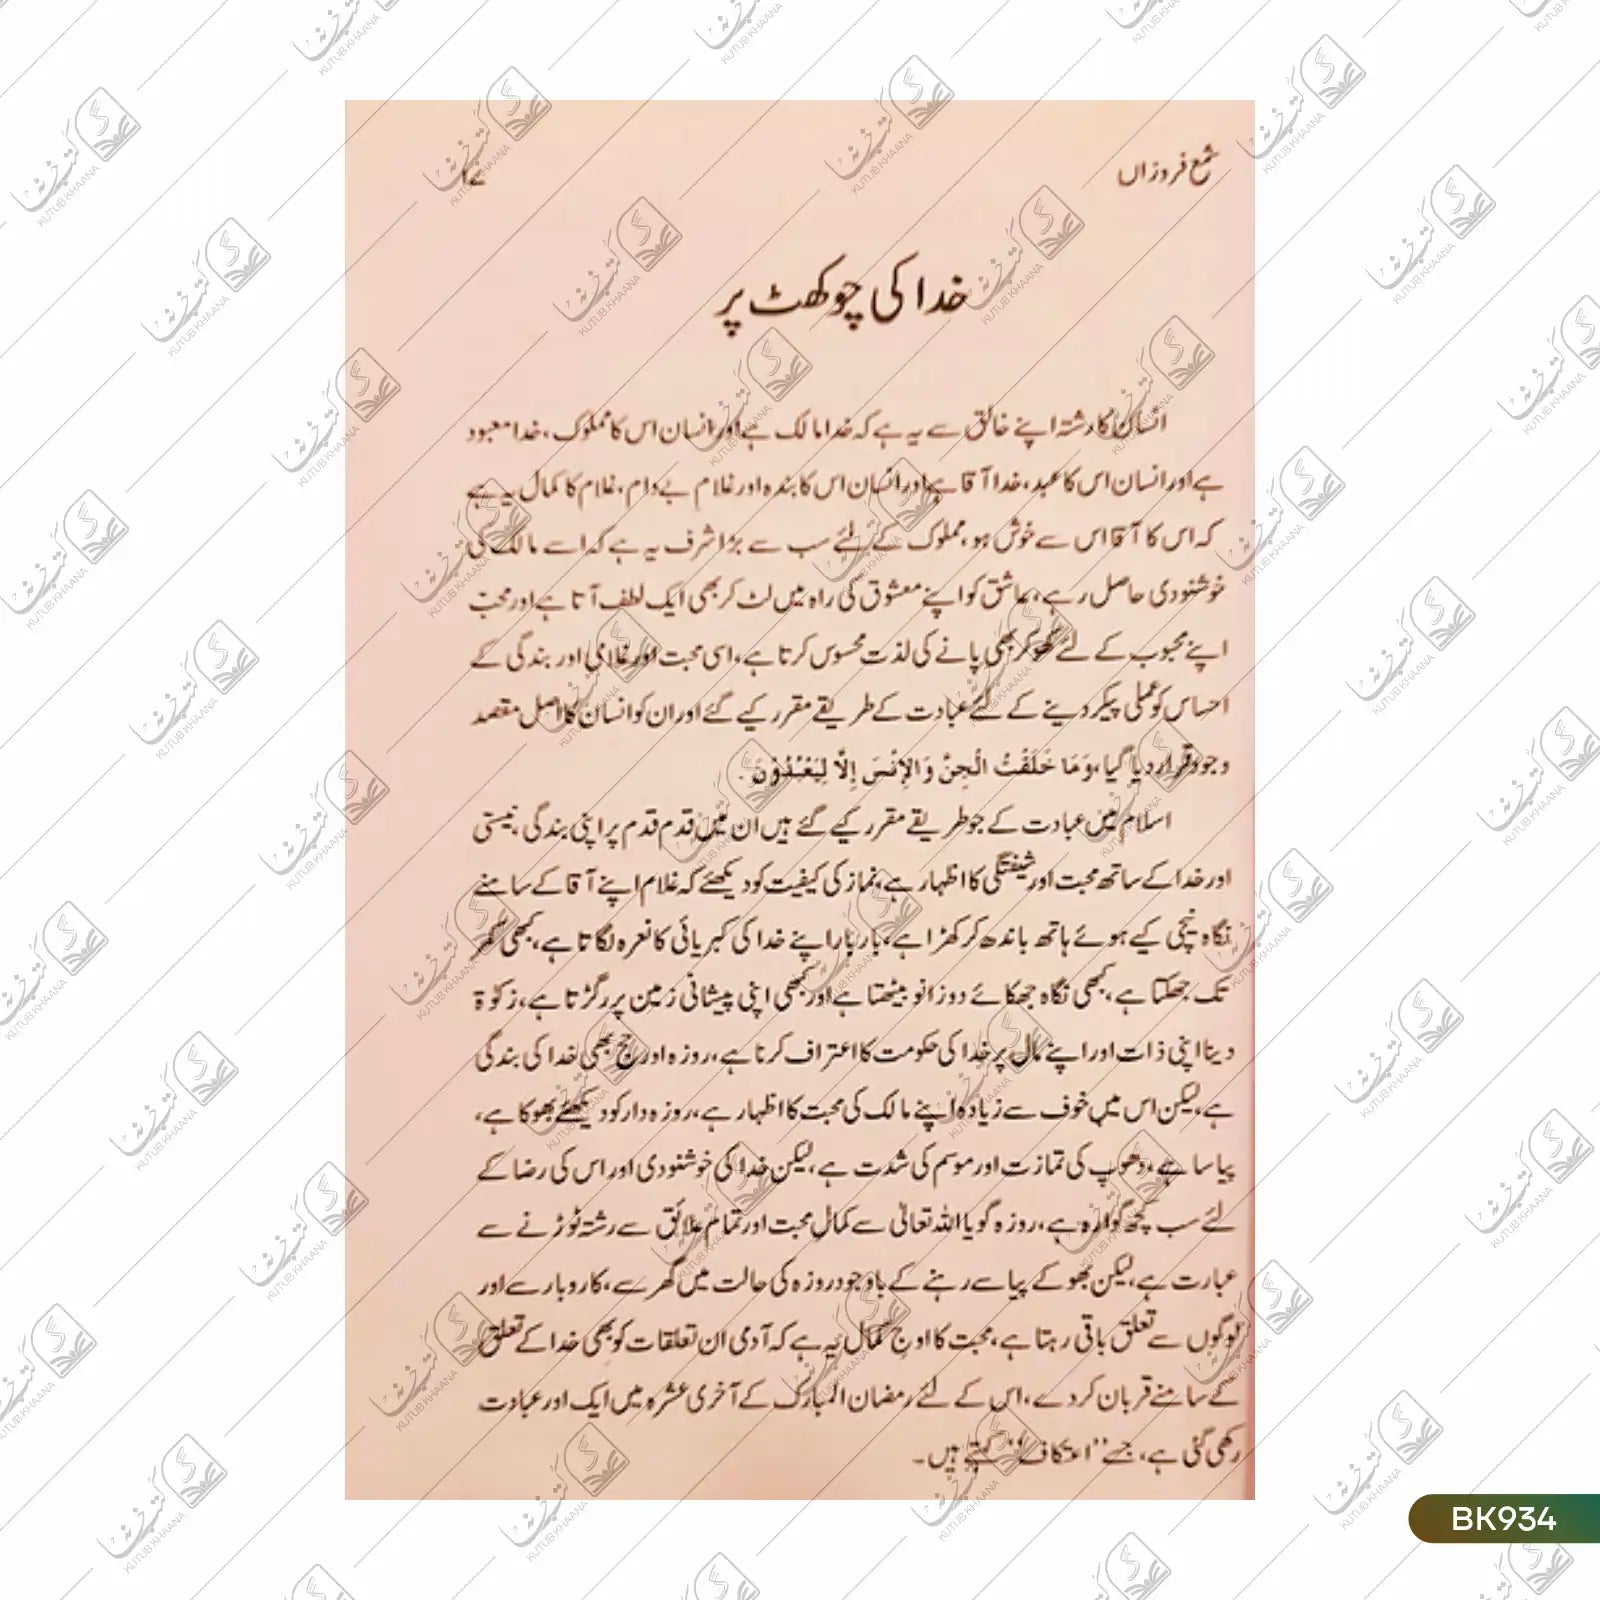 شمع فروزاں
۱۷
خدا کی چوکھٹ پر
انسان کا رشتہ اپنے خالق سے یہ ہے کہ خدا مالک ہے اور انسان اس کا مملوک، خدا معبود
ہے اور انسان اس کا عبد، خدا آقا ہے اور انسان اس کا بندہ اور غلام بے دام، غلام کا کمال یہ ہے
کہ اس کا آقا اس سے خوش ہو، مملوک کے لئے سب سے بڑا شرف یہ ہے کہ اسے مالک کی
خوشنودی حاصل رہے، عاشق کو اپنے معشوق کی راہ میں لٹ کر بھی ایک لطف آتا ہے اور محب
اپنے محبوب کے لئے کھو کر بھی پانے کی لذت محسوس کرتا ہے، اسی محبت اور غلامی اور بندگی کے
احساس کو عملی پیکر دینے کے لئے عبادت کے طریقے مقرر کیے گئے اور ان کو انسان کا اصل مقصد
وجود قرار دیا گیا، وَمَا خَلَقْتُ الْجِنَّ وَالْإِنْسَ إِلَّا لِيَعْبُدُوْنَ ۔
اسلام میں عبادت کے جو طریقے مقرر کیے گئے ہیں ان میں قدم قدم پر اپنی بندگی، نیستی
اور خدا کے ساتھ محبت اور شیفتگی کا اظہار ہے، نماز کی کیفیت کو دیکھئے کہ غلام اپنے آقا کے سامنے
نگاہ نیچی کیے ہوئے ہاتھ باندھ کر کھڑا ہے، بار بار اپنے خدا کی کبریائی کا نعرہ لگاتا ہے، کبھی کمر
تک جھکتا ہے، کبھی نگاہ جھکائے دوزانو بیٹھتا ہے اور کبھی اپنی پیشانی زمین پر رگڑتا ہے، زکوٰۃ
دینا اپنی ذات اور اپنے مال پر خدا کی حکومت کا اعتراف کرنا ہے، روزہ اور حج بھی خدا کی بندگی
ہے، لیکن اس میں خوف سے زیادہ اپنے مالک کی محبت کا اظہار ہے، روزہ دار کو دیکھئے بھوکا ہے،
پیاسا ہے، دھوپ کی تمازت اور موسم کی شدت ہے، لیکن خدا کی خوشنودی اور اس کی رضا کے
لئے سب کچھ گوارہ ہے، روزہ گویا اللہ تعالیٰ سے کمال محبت اور تمام علائق سے رشتہ توڑنے سے
عبارت ہے، لیکن بھوکے پیاسے رہنے کے باوجود روزہ کی حالت میں گھر سے، کاروبار سے اور
لوگوں سے تعلق باقی رہتا ہے، محبت کا اوج کمال یہ ہے کہ آدمی ان تعلقات کو بھی خدا کے تعلق
کے سامنے قربان کردے، اس کے لئے رمضان المبارک کے آخری عشرہ میں ایک اور عبادت
رکھی گئی ہے، جسے "اعتکاف" کہتے ہیں۔
BK934
کتب خانہ
KUTUB KHAANA